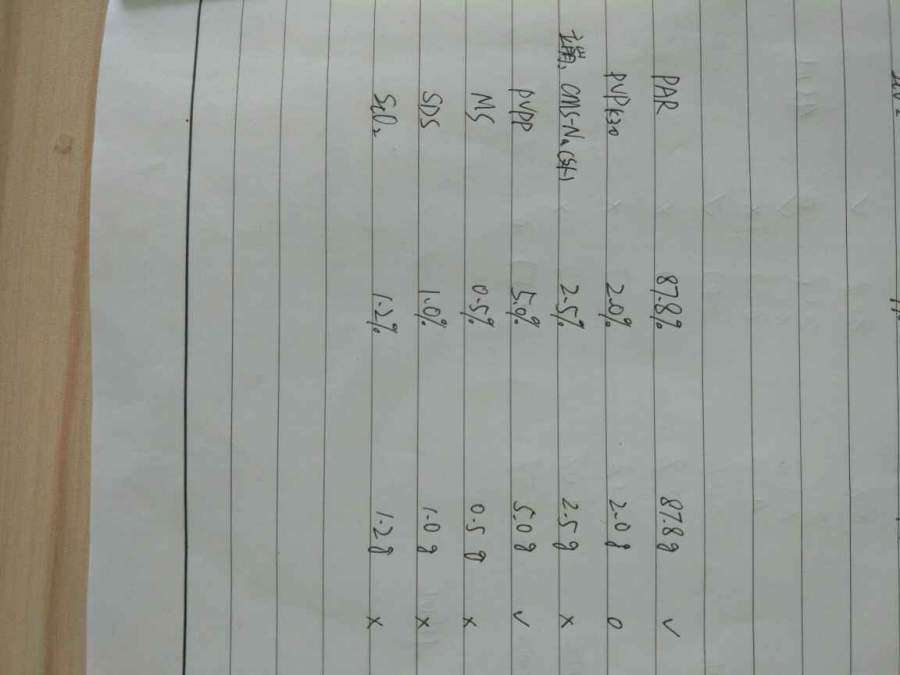 PAR 87.8% 87.8g ✓
PVPK30 2.0% 2.0g O
CMS-Na 2.5% 2.5g ×
PVPP 5.0% 5.0g ✓
MS 0.5% 0.5g ×
SDS 1.0% 1.0g ×
SiO₂ 1.2% 1.2g ×